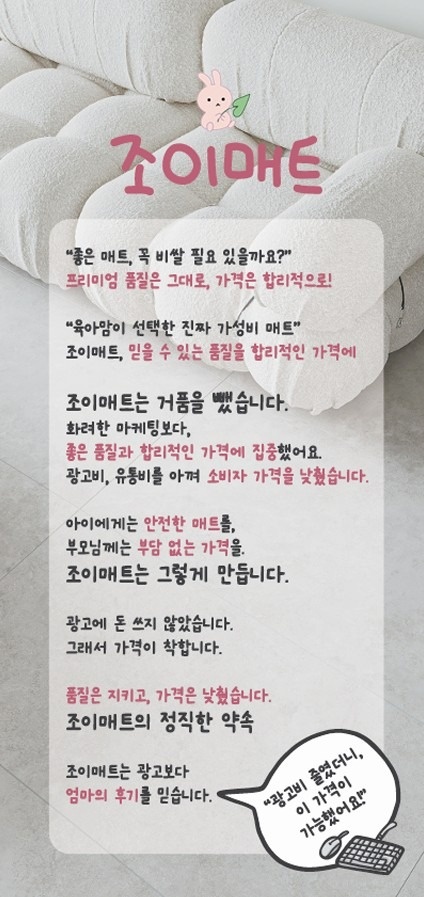 조이매트
“좋은 매트, 꼭 비쌀 필요 있을까요?”
프리미엄 품질은 그대로, 가격은 합리적으로!
“육아맘이 선택한 진짜 가성비 매트”
조이매트, 믿을 수 있는 품질을 합리적인 가격에
조이매트는 거품을 뺐습니다.
화려한 마케팅보다,
좋은 품질과 합리적인 가격에 집중했어요.
광고비, 유통비를 아껴 소비자 가격을 낮췄습니다.
아이에게는 안전한 매트를,
부모님께는 부담 없는 가격을.
조이매트는 그렇게 만듭니다.
광고에 돈 쓰지 않았습니다.
그래서 가격이 착합니다.
품질은 지키고, 가격은 낮췄습니다.
조이매트의 정직한 약속
조이매트는 광고보다
엄마의 후기를 믿습니다.
“광고비 줄였더니,
이 가격이
가능했어요!”